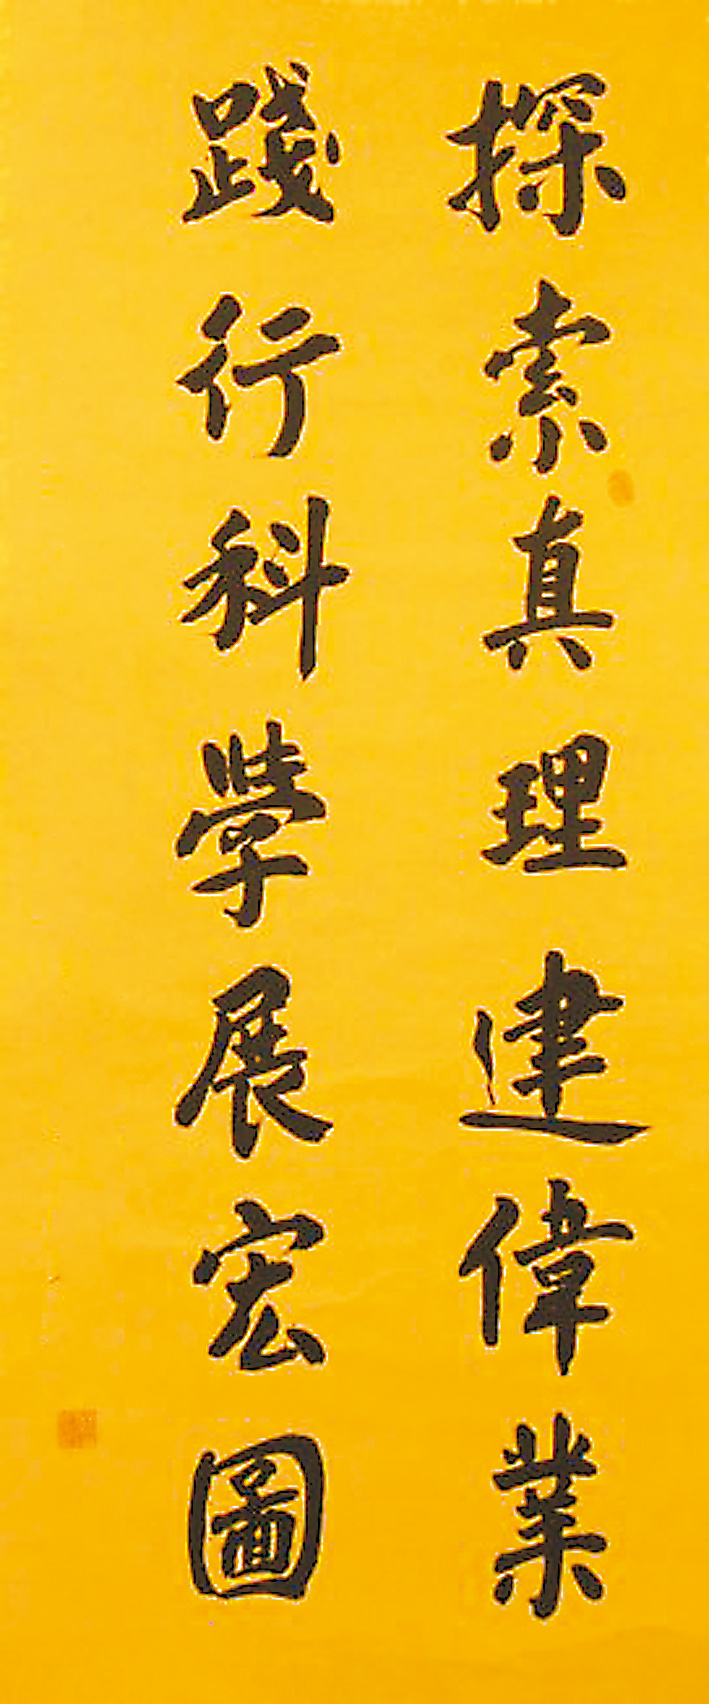 探索真理建偉業
踐行科學展宏圖